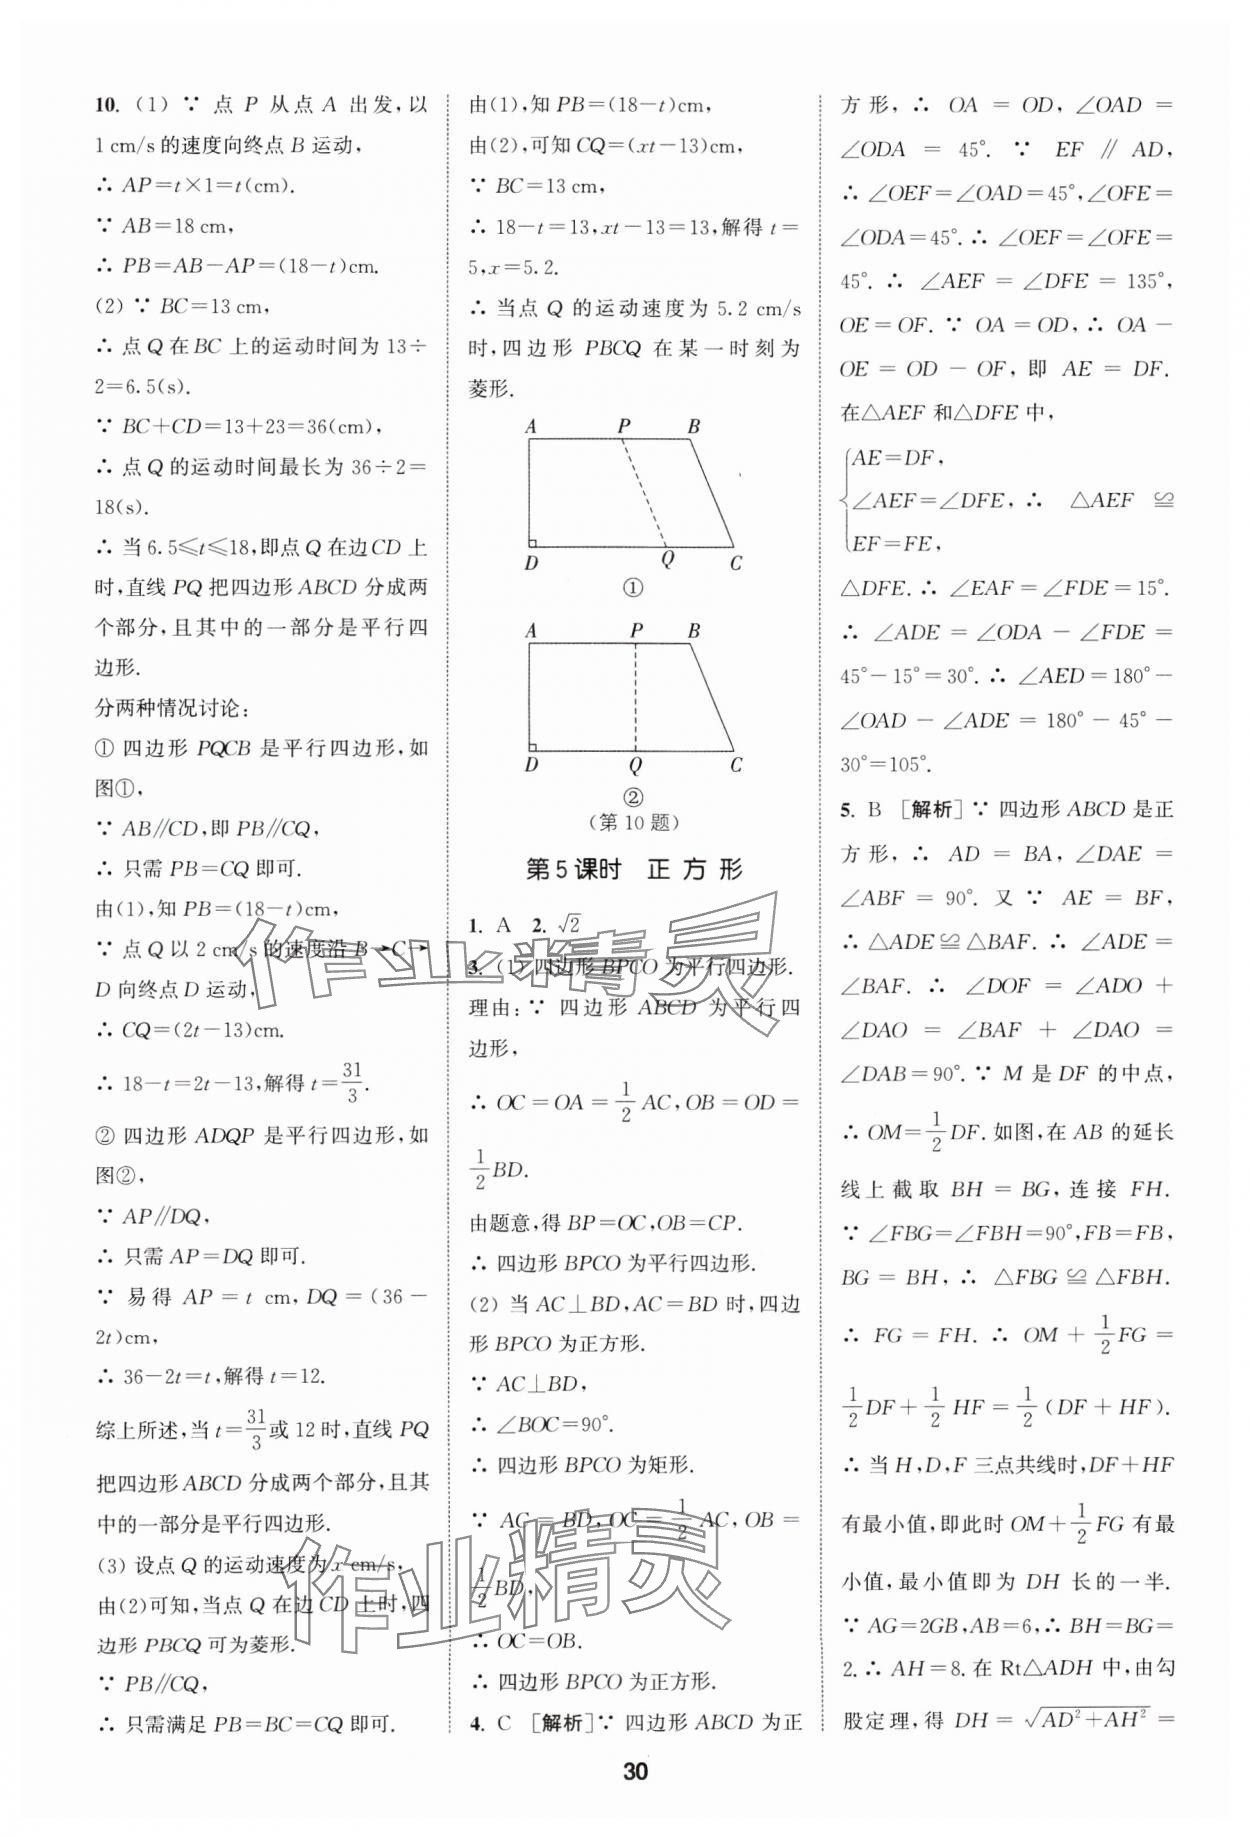 10. (1) ∵ 点 P 从点 A 出发,以
1 cm/s 的速度向终点 B 运动,
∴ AP=t×1=t(cm).
∵ AB=18 cm,
∴ PB=AB-AP=(18-t)cm.
(2) ∵ BC=13 cm,
∴ 点 Q 在 BC 上的运动时间为 13÷
2=6.5(s).
∵ BC+CD=13+23=36(cm),
∴ 点 Q 的运动时间最长为 36÷2=
18(s).
∴ 当 6.5≤t≤18,即点 Q 在边 CD 上
时,直线 PQ 把四边形 ABCD 分成两
个部分,且其中的一部分是平行四
边形.
分两种情况讨论:
① 四边形 PQCB 是平行四边形,如
图①,
∵ AB∥CD,即 PB∥CQ,
∴ 只需 PB=CQ 即可.
由(1),知 PB=(18-t)cm,
∵ 点 Q 以 2 cm/s 的速度沿 B→C→
D 向终点 D 运动,
∴ CQ=(2t-13)cm.
∴ 18-t=2t-13,解得 t=31/3.
② 四边形 ADQP 是平行四边形,如
图②,
∵ AP∥DQ,
∴ 只需 AP=DQ 即可.
∵ 易得 AP=t cm,DQ=(36-
2t)cm,
∴ 36-2t=t,解得 t=12.
综上所述,当 t=31/3 或 12 时,直线 PQ
把四边形 ABCD 分成两个部分,且其
中的一部分是平行四边形.
(3) 设点 Q 的运动速度为 x cm/s,
由(2)可知,当点 Q 在边 CD 上时,四
边形 PBCQ 可为菱形.
∵ PB∥CQ,
∴ 只需满足 PB=BC=CQ 即可.
由(1),知 PB=(18-t)cm,
由(2),可知 CQ=(xt-13)cm,
∵ BC=13 cm,
∴ 18-t=13,xt-13=13,解得 t=
5,x=5.2.
∴ 当点 Q 的运动速度为 5.2 cm/s
时,四边形 PBCQ 在某一时刻为
菱形.
A P B
D Q C
①
A P B
D Q C
②
(第 10 题)
第 5 课时 正方形
1. A 2. √2
3. (1) 四边形 BPCO 为平行四边形.
理由:∵ 四边形 ABCD 为平行四
边形,
∴ OC=OA=1/2 AC,OB=OD=
1/2 BD.
由题意,得 BP=OC,OB=CP.
∴ 四边形 BPCO 为平行四边形.
(2) 当 AC⊥BD,AC=BD 时,四边
形 BPCO 为正方形.
∵ AC⊥BD,
∴ ∠BOC=90°.
∴ 四边形 BPCO 为矩形.
∵ AC=BD,OC=1/2 AC,OB=
1/2 BD,
∴ OC=OB.
∴ 四边形 BPCO 为正方形.
4. C [解析]∵ 四边形 ABCD 为正
方形,∴ OA=OD,∠OAD=
∠ODA=45°.∵ EF∥AD,
∴ ∠OEF=∠OAD=45°,∠OFE=
∠ODA=45°.∴ ∠OEF=∠OFE=
45°.∴ ∠AEF=∠DFE=135°,
OE=OF.∵ OA=OD,∴ OA-
OE=OD-OF,即 AE=DF.
在△AEF 和△DFE 中,
AE=DF,
∠AEF=∠DFE,∴ △AEF≌
EF=FE,
△DFE.∴ ∠EAF=∠FDE=15°.
∴ ∠ADE=∠ODA-∠FDE=
45°-15°=30°.∴ ∠AED=180°-
∠OAD-∠ADE=180°-45°-
30°=105°.
5. B [解析]∵ 四边形 ABCD 是正
方形,∴ AD=BA,∠DAE=
∠ABF=90°.又∵ AE=BF,
∴ △ADE≌△BAF.∴ ∠ADE=
∠BAF.∴ ∠DOF=∠ADO+
∠DAO=∠BAF+∠DAO=
∠DAB=90°.∵ M 是 DF 的中点,
∴ OM=1/2 DF.如图,在 AB 的延长
线上截取 BH=BG,连接 FH.
∵ ∠FBG=∠FBH=90°,FB=FB,
BG=BH,∴ △FBG≌△FBH.
∴ FG=FH.∴ OM+1/2 FG=
1/2 DF+1/2 HF=1/2 (DF+HF).
∴ 当 H,D,F 三点共线时,DF+HF
有最小值,即此时 OM+1/2 FG 有最
小值,最小值即为 DH 长的一半.
∵ AG=2GB,AB=6,∴ BH=BG=
2.∴ AH=8.在 Rt△ADH 中,由勾
股定理,得 DH=√(AD²+AH²)=
30
作业精灵
作业精灵